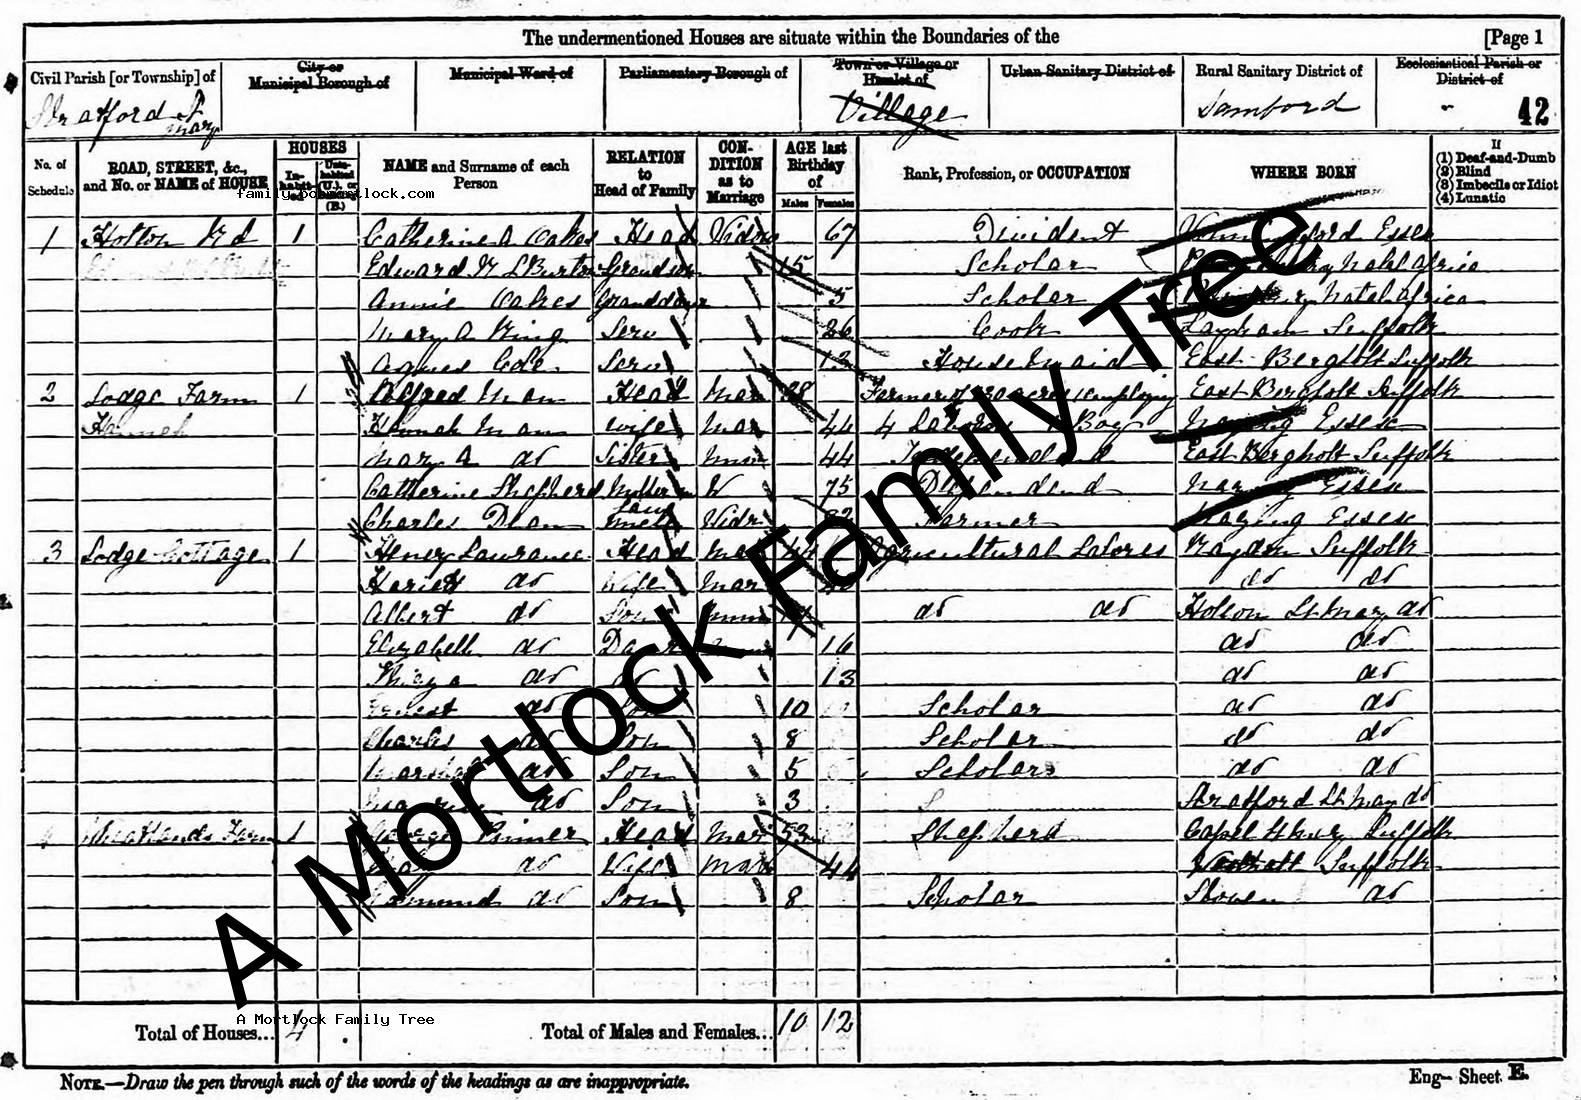 The undermentioned Houses are situate within the Boundaries of the [Page 1
Civil Parish [or Township] of
City or Municipal Borough of
Municipal Ward of
Parliamentary Borough of
Town or Village or Hamlet of
Urban Sanitary District of
Rural Sanitary District of
Ecclesiastical Parish or District of
Stratford St Mary Village Samford 42
No. of Schedule
ROAD, STREET, &c., and No. or NAME of HOUSE
HOUSES
Inhabited
Uninhabited (U.), or Building (B.)
NAME and Surname of each Person
RELATION to Head of Family
CONDITION as to Marriage
AGE last Birthday of
Males Females
Rank, Profession, or OCCUPATION
WHERE BORN
If
(1) Deaf-and-Dumb
(2) Blind
(3) Imbecile or Idiot
(4) Lunatic
family.bobmortlock.com
1 Holton Rd 1 Catherine A Oakes Head Widow 67 Divident Essex
Edward L Burton Grandson 15 Scholar Natal Africa
Annie Oakes 5 Scholar Natal Africa
Mary A King Serv 26 Cook Suffolk
Agnes Cole Serv 13 House Maid East Bergholt Suffolk
2 Lodge Farm 1 Alfred Man Head Mar 38 Farmer of acres employing East Bergholt Suffolk
Hannah Hannah Man Wife Mar 44 4 Labors Boy Nazing Essex
Mary A do Sister 44 East Bergholt Suffolk
Catherine Shepherd Mother in Law W 75 Essex
Charles Uncle Widr 82 Farmer Nazing Essex
3 Lodge Cottage 1 Henry Lawrance Head Mar 44 Agricultural Labores Raydon Suffolk
Hariett do Wife Mar do do
Albert do Son do do Holton St Mary do
Elizabeth do Daur 16 do do
do 13 do do
Ernest do Son 10 Scholar do do
Charles do Son 8 Scholar do do
do Son 5 Scholars do do
do Son 3 Stratford St Mary do
4 Farm 1 George Head Mar 53 Shepherd Capel St Mary Suffolk
do Wife Mar 44 Suffolk
Edmund do Son 8 Scholar do
A Mortlock Family Tree
A Mortlock Family Tree
Total of Houses... 4 Total of Males and Females... 10 12
NOTE.—Draw the pen through such of the words of the headings as are inappropriate.
Eng— Sheet E.